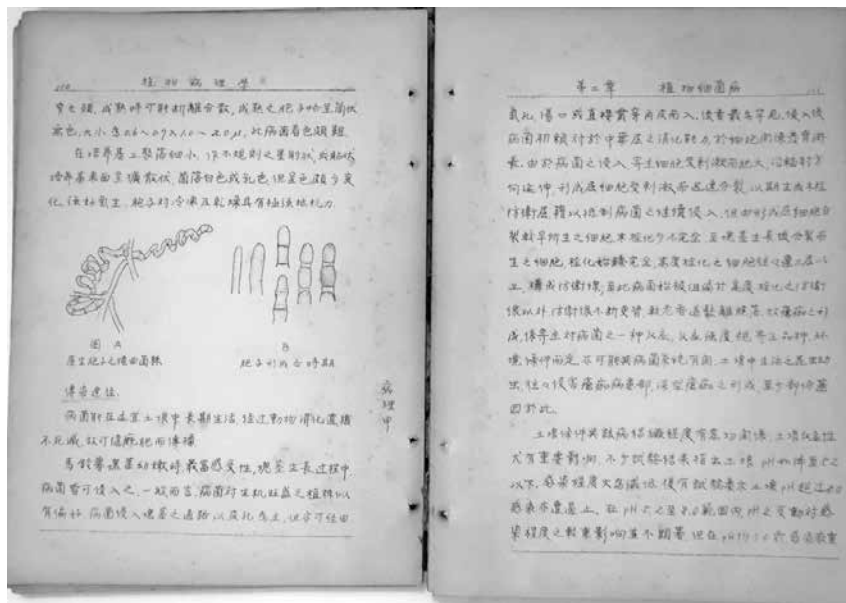 植物病理學
冒之頭,成熟時可斷離分散,成熟之孢子哈呈筒狀
無色,大小為0.6~0.7×1.0~2.0μ,此病菌着色頗難.
在培养基上聚落細小,作不規則之星射狀,或粘狀
培养基表面呈擴散狀,菌落白色或乳色,但呈色頗多变
化,須好氧生,孢子对冷凍及乾燥具有極强抵抗力.
圖 A
B
產生孢子之摺曲菌絲
孢子形成各時期
傳染途徑.
病菌能在适宜土壤中長期生活,经过動物消化道猶
不死滅,故可隨廐肥而傳播
馬鈴薯塊莖幼嫩時最富感受性,塊莖生長过程中
病菌皆可侵入之,一般而言,病菌对生机旺盛之植株似
有偏好,病菌侵入塊莖之通路以皮孔為主,但亦可经由
病理甲
第二章 植物细菌病
氣孔,傷口或直接貫穿角皮而入,後者最為罕見,侵入後
病菌初賴对於中膠层之消化能力於细胞间隙蔓育滋
長.由於病菌之侵入,寄生细胞受刺激而肥大,沿輻射方
向延伸,形成层细胞受刺激而迅速分裂,以期生成木栓
防衛层藉以抵制病菌之继續侵入,但由形成层细胞分
裂較早所生之细胞木栓化多不完全,至塊莖生長後分裂而
生之细胞,栓化始臻完全,高度栓化之细胞往往達三层以
上,構成防衛線,至此病菌始被阻滞於高度栓化之防衛
線以外.防衛線不断更替,較老者遂鬆離脱落,故瘡痂之形
成,係寄主对病菌之一种反应,反应强度視寄主品种,环
境條件而定,不可能與病菌系統有关.土壤中生活之昆虫幼
虫,往往侵害瘡痂病患部,深型瘡痂之形成,至少部份基
因於此.
土壤條件與致病组織程度有密切関係,土壤氢盐性
尤有重要影响,不少試驗结果指出土壤pH如降至5.2
以下,感染程度大為減低,復有試驗表示土壤pH超过8.0
感染亦遭甚上,在pH5.2至8.0範圍內,pH之变動对感
染程度之較重影响並不顯著,但在